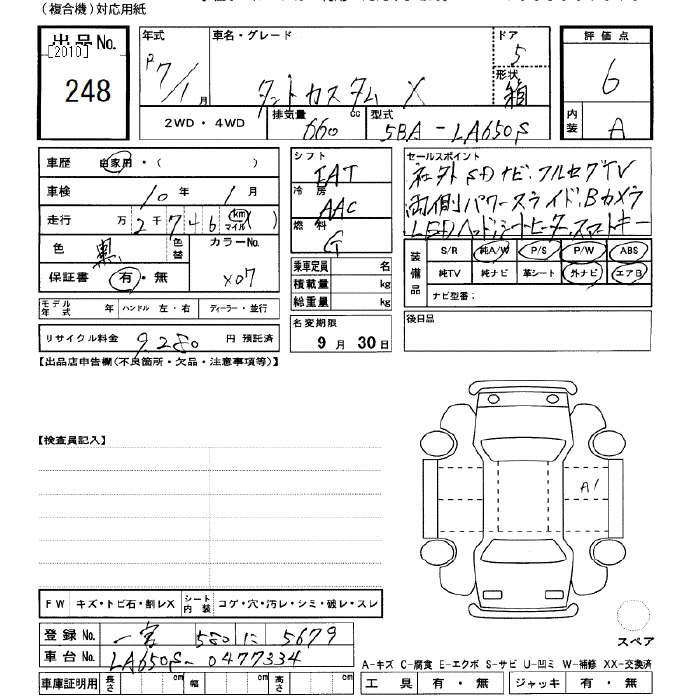 (複合機)対応用紙
出品No.
[2010]
248
年式
R7/1月
車名・グレード
タントカスタム X
ドア
5
形状
箱
評価点
6
内装
A
2WD・4WD
排気量 660 cc
型式 5BA-LA650S
車歴 自家用・( )
車検 10年 1月
走行 万 2千 7 4 6 (km マイル)
色 黒 色替
カラーNo.
X07
保証書 有・無
モデル年式 年 ハンドル 左・右 ディーラー・並行
リサイクル料金 9,280 円 預託済
シフト
IAT
冷房
AAC
燃料
G
乗車定員 名
積載量 kg
総重量 kg
名変期限
9月 30日
セールスポイント
社外SDナビ・フルセグTV
両側パワースライド・Bカメラ
LEDヘッド・シートヒーター・スマートキー
装備品
S/R 純A/W P/S P/W ABS
純TV 純ナビ 革シート 外ナビ エアB
ナビ型番:
後日品
【出品店申告欄(不良箇所・欠品・注意事項等)】
【検査員記入】
A1
FW キズ・トビ石・割レX シート内装 コゲ・穴・汚レ・シミ・破レ・スレ
登録No. 一宮 580 に 5679
車台No. LA650S-0477334
車庫証明用 長さ cm 幅 cm 高さ cm
スペア
A-キズ C-腐食 E-エクボ S-サビ U-凹ミ W-補修 XX-交換済
工具 有・無 ジャッキ 有・無